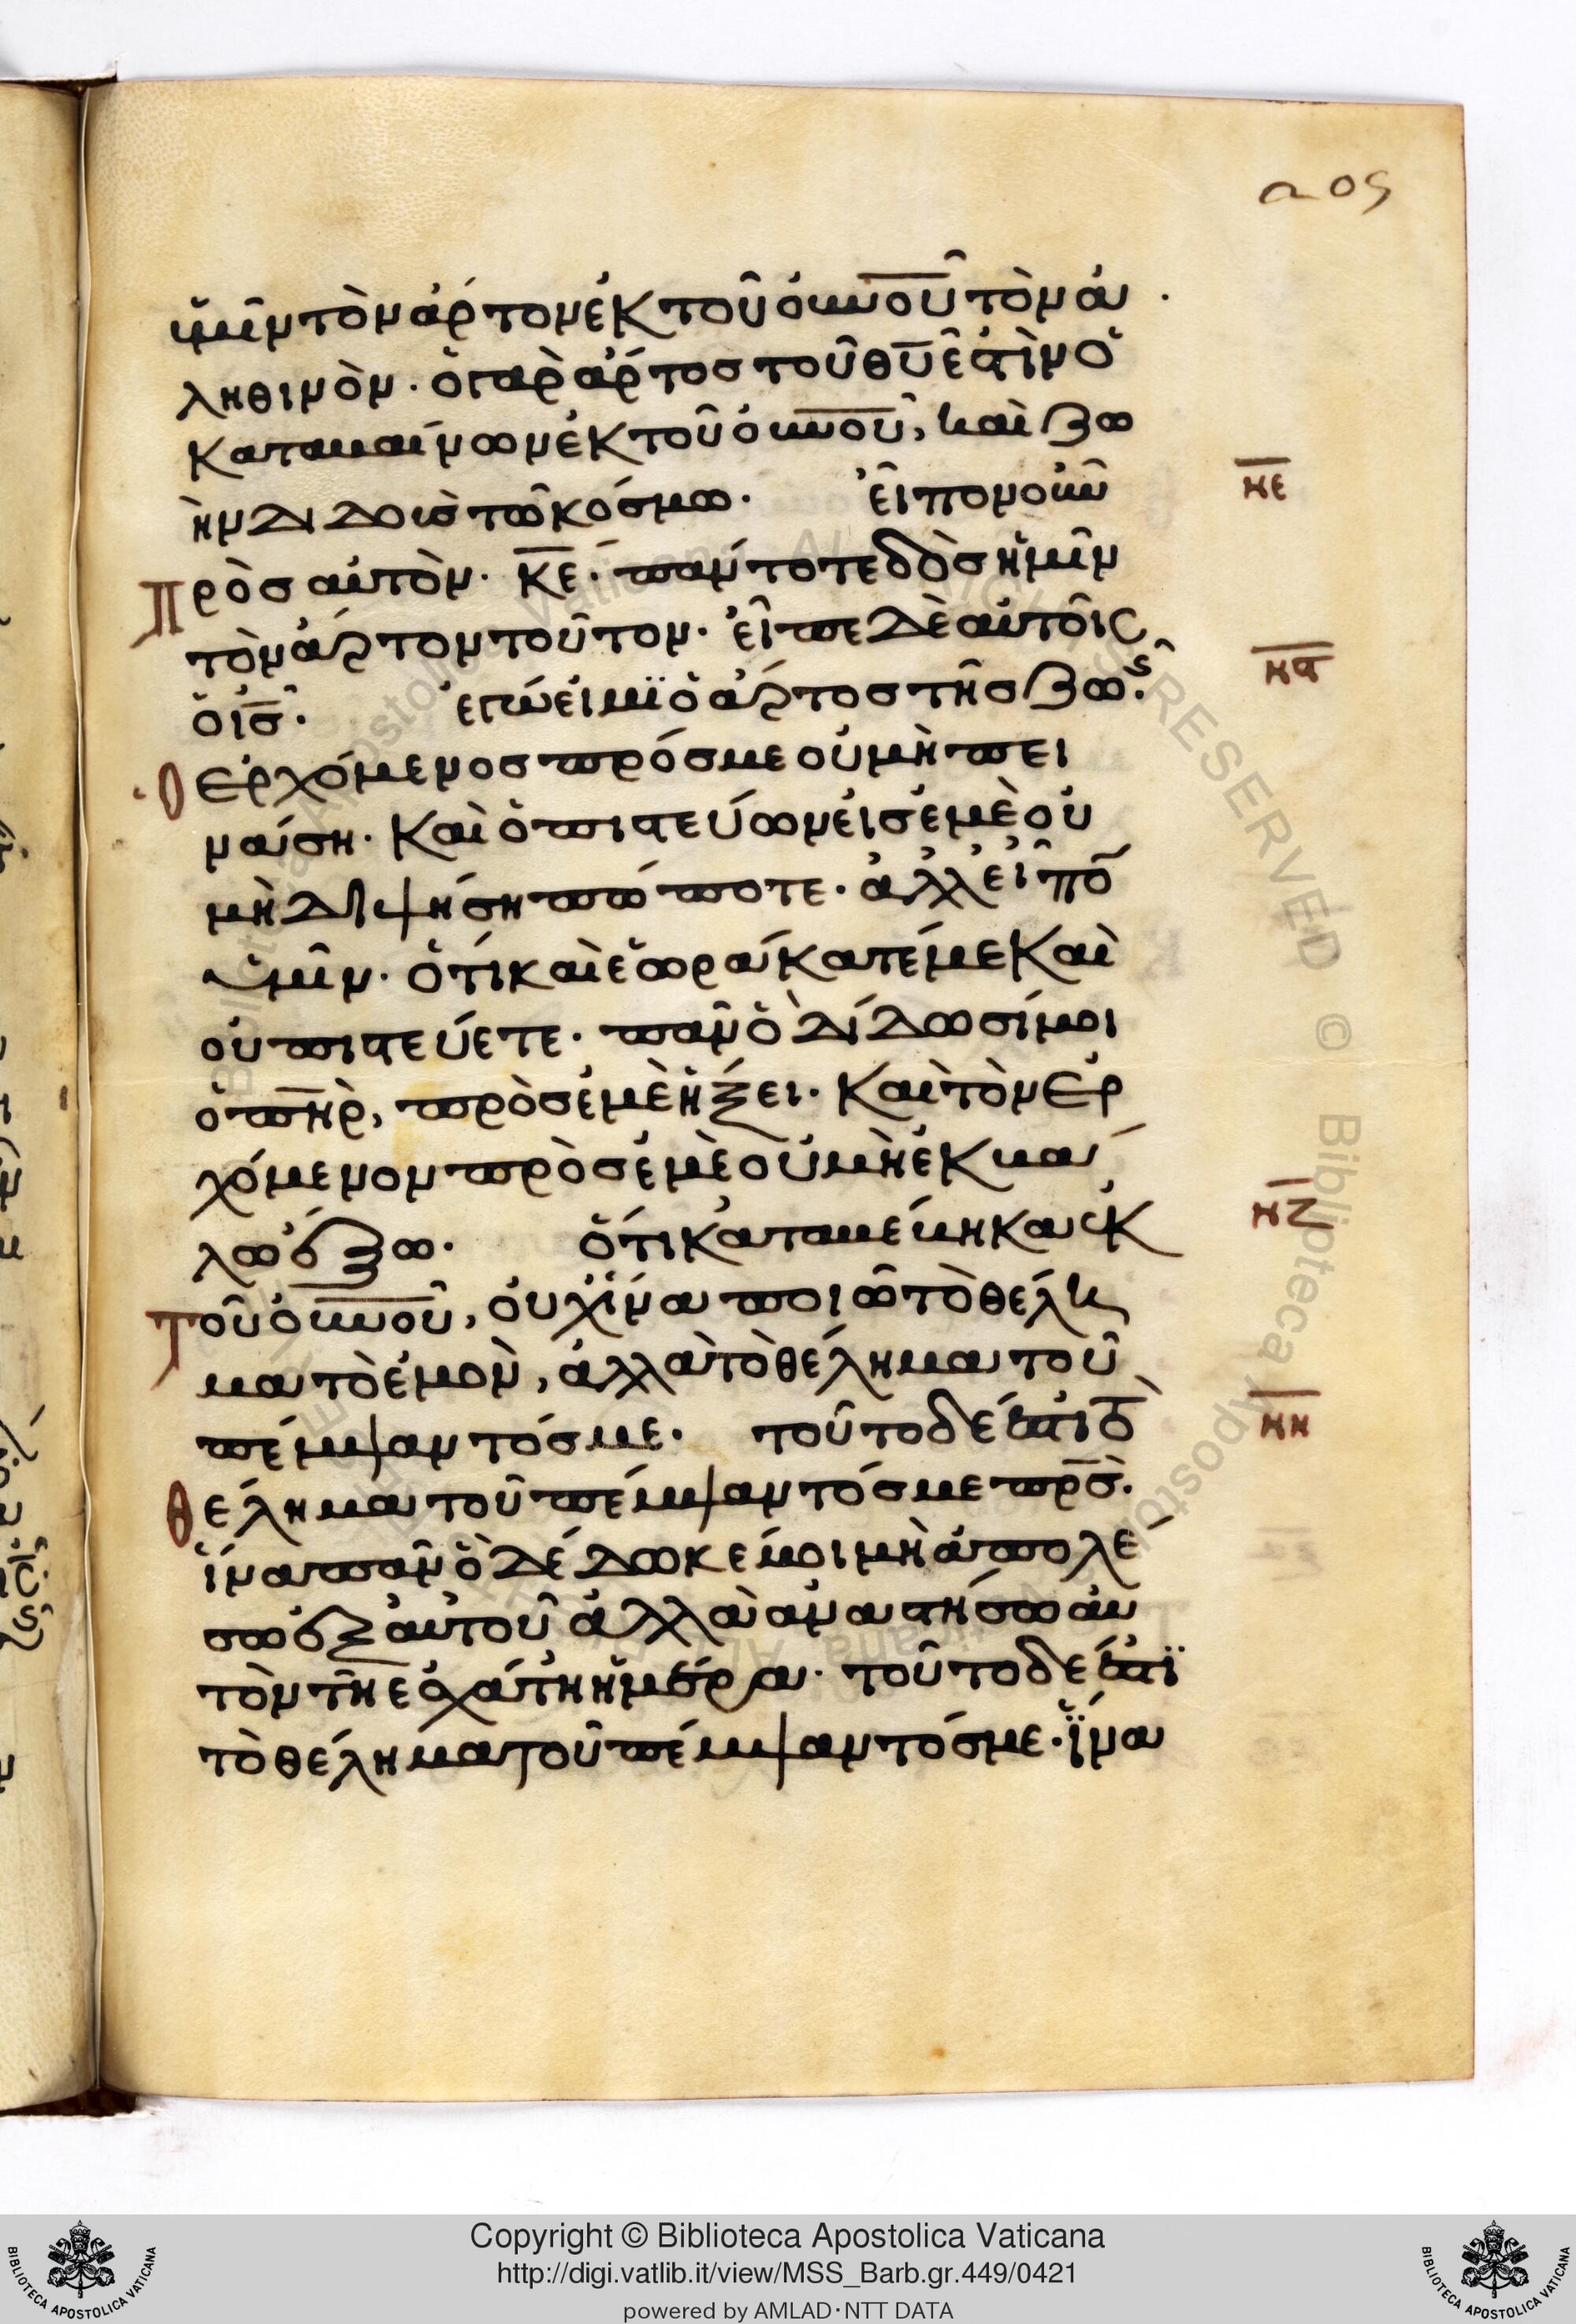 205
ὑμῖν τὸν ἄρτον ἐκ τοῦ ὀυνοῦ τὸν ἀ
ληθινὸν· ὁ γὰρ ἄρτος τοῦ θυ ἐστὶν ὁ
καταβαίνων ἐκ τοῦ ὀυνοῦ, καὶ ζω
ὴν διδοὺς τῶ κόσμω· εἶπον οὖν
κε
πρὸς αὐτὸν· κε· πάντοτε δὸς ἡμῖν
τὸν ἄρτον τοῦτον· εἶπε δὲ αὐτοῖς
ὁ ις· ἐγώ εἰμι ὁ ἄρτος τῆς ζωῆς·
κϛ
Ὁ ἐρχόμενος πρός με οὐ μὴ πει
νάση· καὶ ὁ πιστεύων εἰς ἐμὲ οὐ
μὴ διψήση πώποτε· ἀλλ' εἶπο
ὑμῖν· ὅτι καὶ ἑωράκατέ με καὶ
οὐ πιστεύετε· πᾶν ὃ δίδωσί μοι
ὁ πηρ, πρὸς ἐμὲ ἥξει· καὶ τὸν ἐρ
χόμενον πρὸς ἐμὲ οὐ μὴ ἐκβά
λω ἔξω· ὅτι καταβέβηκα ἐκ
κζ
Τοῦ ὀυνοῦ, οὐχ ἵνα ποιῶ τὸ θέλη
μα τὸ ἐμὸν, ἀλλὰ τὸ θέλημα τοῦ
πέμψαντός με· τοῦτο δέ ἐστι τὸ
κη
θέλημα τοῦ πέμψαντός με πρς·
ἵνα πᾶν ὃ δέδωκέ μοι μὴ ἀπολέ
σω ἐξ αὐτοῦ ἀλλὰ ἀναστήσω αὐ
τὸν τῆ ἐσχάτη ἡμέρα· τοῦτο δέ ἐστϊ
τὸ θέλημα τοῦ πέμψαντός με· ἵνα
Copyright © Biblioteca Apostolica Vaticana
http://digi.vatlib.it/view/MSS_Barb.gr.449/0421
powered by AMLAD·NTT DATA
BIBLIOTECA APOSTOLICA VATICANA
BIBLIOTECA APOSTOLICA VATICANA